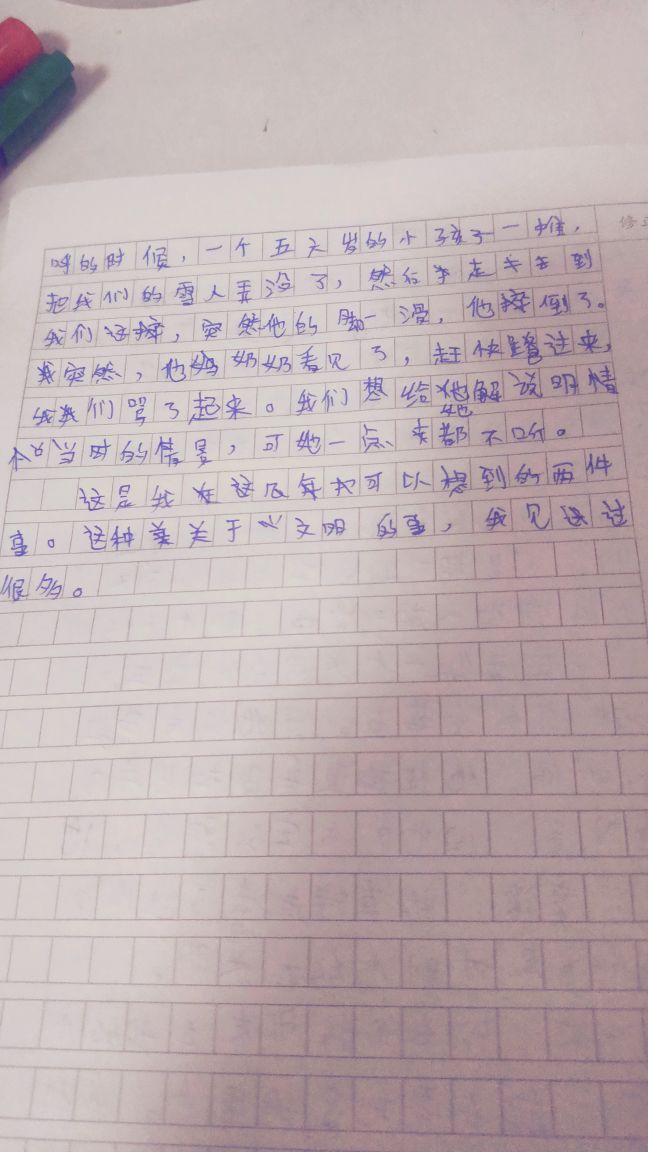 的时候，一个五六岁的小孩子一推，
把我们的雪人弄没了，然后走到
我们这，突然他的脚一滑，他摔倒了。
突然，他奶奶看见了，赶快跑过来，
我们骂了起来。我们想给她解说明情
当时的情景，可她一点都不听。
这是我在这几年中可以想到的两件
事。这种关于文明的事，我见过
很多。
修